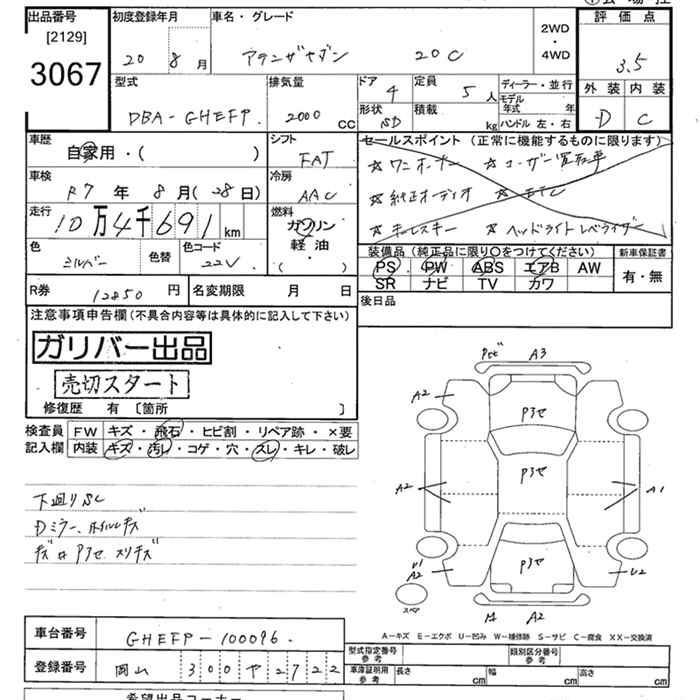 出品番号
[2129]
3067
初度登録年月
20 8月
車名・グレード
アテンザセダン 20C
2WD
・
4WD
評価点
3.5
外装 内装
D C
型式
DBA-GHEFP.
排気量
2000 CC
ドア
4
定員
5人
形状
SD
積載
kg
ディーラー・並行
モデル年式 年
ハンドル 左・右
車歴
自家用・( )
シフト
FAT
車検
R7年 8月(28日)
冷房
AAC
走行
10万4千691km
燃料
ガソリン
軽油
・( )
色
シルバー
色替
色コード
22V
セールスポイント(正常に機能するものに限ります)
☆ワンオーナー ☆ユーザー買取車
☆純正オーディオ ☆ETC
☆キーレスキー ☆ヘッドライトレベライザー
装備品(純正品に限り○をつけてください)
PS PW ABS エアB AW
SR ナビ TV カワ
新車保証書
有・無
R券 12850円
名変期限 月 日
後日品
注意事項申告欄(不具合内容等は具体的に記入して下さい)
ガリバー出品
売切スタート
修復歴 有 〔箇所 〕
検査員記入欄
FW キズ・飛石・ヒビ割・リペア跡・×要
内装 キズ・汚レ・コゲ・穴・スレ・キレ・破レ
下廻りSC
Dミラー、ホイルキズ
キズ〃P3セ スリキズ
A3
A2
P3セ
P3セ
A2
A1
P3セ
U1
A2
U2
スペア
A2
A-キズ E-エクボ U-凹み W-補修跡 S-サビ C-腐食 XX-交換済
車台番号
GHEFP-100096.
登録番号
岡山 300 や 2722
型式指定番号
参考
類別区分番号
参考
車庫証明用
参考
長さ cm
幅 cm
高さ cm
希望出品コーナー